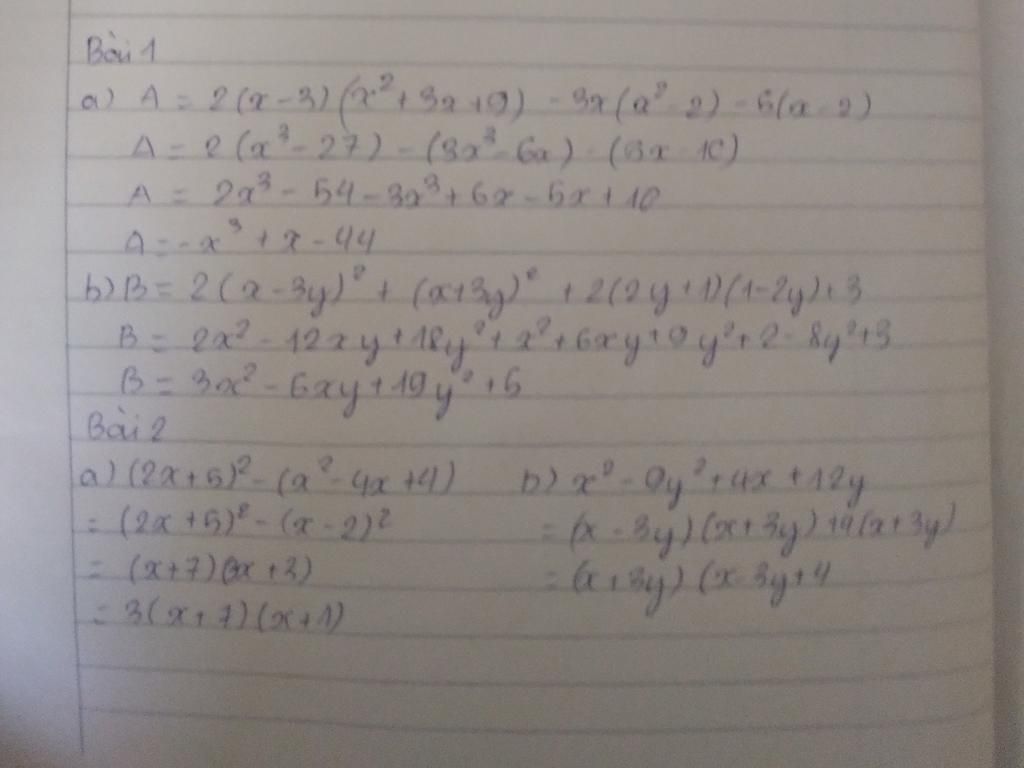 Bài 1
a) A = 2(x-3)(x²+3x+9) - 3x(x²-2) - 5(x-2)
A = 2(x³-27) - (3x³-6x) - (5x-10)
A = 2x³ - 54 - 3x³ + 6x - 5x + 10
A = -x³ + x - 44
b) B = 2(x-3y)² + (x+3y)² + 2(2y+1)(1-2y)+3
B = 2x² - 12xy + 18y² + x² + 6xy + 9y² + 2 - 8y² + 3
B = 3x² - 6xy + 19y² + 5
Bài 2
a) (2x+5)² - (x²-4x+4)
= (2x+5)² - (x-2)²
= (x+7)(3x+3)
= 3(x+7)(x+1)
b) x² - 9y² + 4x + 12y
= (x-3y)(x+3y)+4(x+3y)
= (x+3y)(x-3y+4